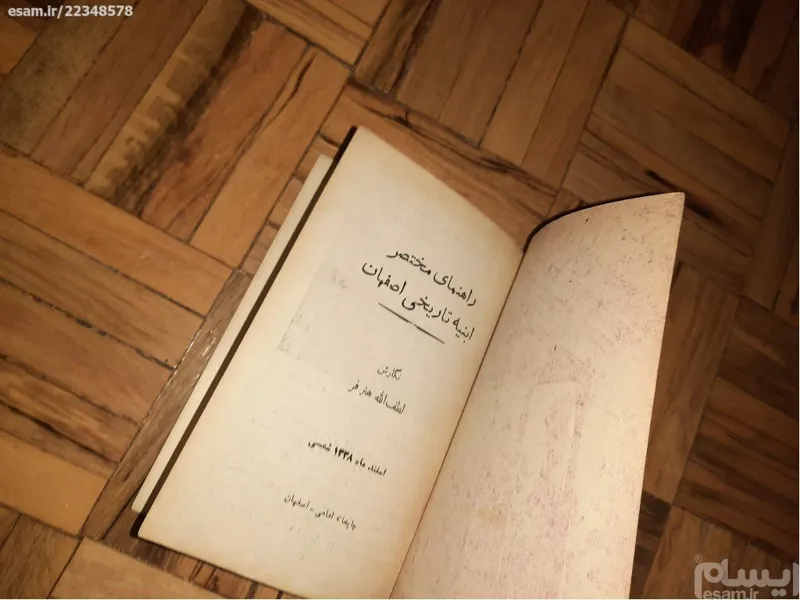 esam.ir/22348578
راهنمای مختصر
ابنیه تاریخی اصفهان
نگارش
لطف‌الله هنرفر
اسفند ماه ۱۳۳۸ شمسی
چاپخانه امامی - اصفهان
ایسام
esam.ir